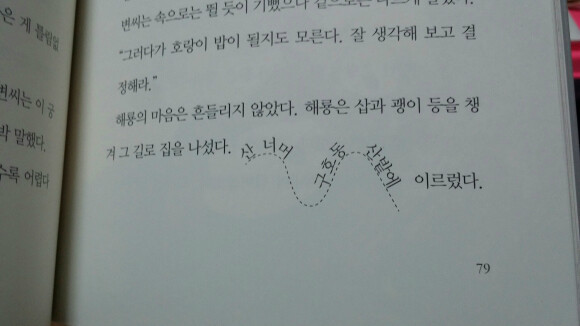 은 게 틀림없
변씨는 이 궁
말했다.
수록 어렵다
변씨는 속으로는 뛸 듯이 기뻤으나 겉으로는
“그러다가 호랑이 밥이 될지도 모른다. 잘 생각해 보고 결
정해라.”
해룡의 마음은 흔들리지 않았다. 해룡은 삽과 괭이 등을 챙
겨 그 길로 집을 나섰다. 산 너머 구호동 산밭에 이르렀다.
79